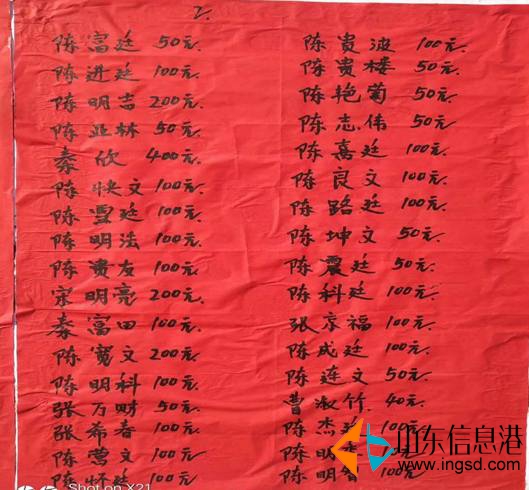 2.
陈富廷 50元.
陈进廷 100元.
陈明吉 200元.
陈亚林 50元.
秦欣 400元.
陈快文 100元.
陈丰廷 100元.
陈明法 100元.
陈贵友 100元.
宋明亮 200元.
秦富田 100元.
陈宽文 200元.
陈明科 100元.
张万财 50元.
张希春 100元.
陈营文 100元.
陈怀廷 100元
陈贵波 100元.
陈贵楼 50元.
陈艳菊 50元.
陈志伟 50元.
陈喜廷 100元.
陈良文 100元.
陈路廷 100元.
陈坤文 50元.
陈震廷 50元.
陈科廷 100元.
张京福 100元.
陈成廷 100元.
陈连文 50元.
曹淑竹 40元.
陈杰 100元
陈明
陈明
Shot on X21
山东信息港
www.ingsd.com